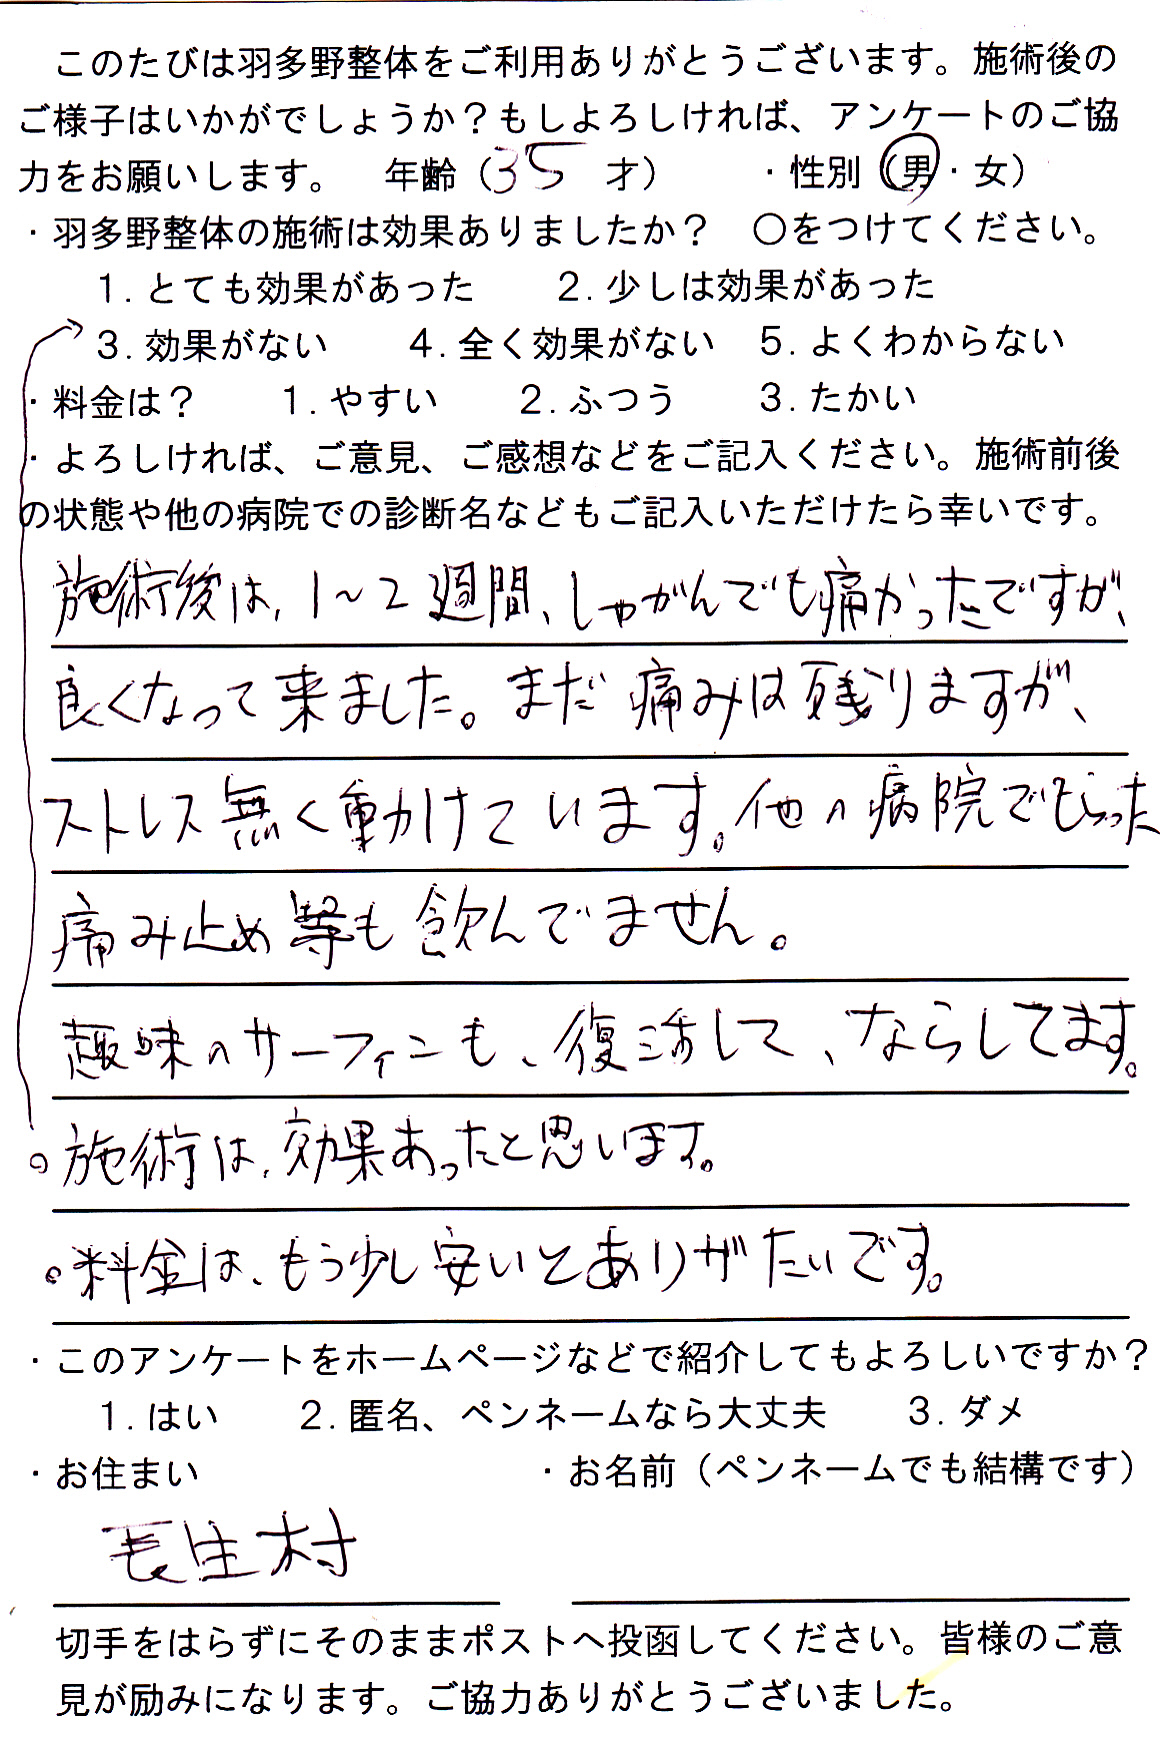 このたびは羽多野整体をご利用ありがとうございます。施術後の
ご様子はいかがでしょうか？もしよろしければ、アンケートのご協
力をお願いします。　年齢（35才）　　・性別（男・女）
・羽多野整体の施術は効果ありましたか？　〇をつけてください。
1. とても効果があった　　2. 少しは効果があった
3. 効果がない　　4. 全く効果がない　5. よくわからない
・料金は？　　1. やすい　　2. ふつう　　3. たかい
・よろしければ、ご意見、ご感想などをご記入ください。施術前後
の状態や他の病院での診断名などもご記入いただけたら幸いです。
施術後は、1～2週間、しゃがんでも痛かったですが、
良くなって来ました。まだ痛みは残りますが、
ストレス無く動けています。他の病院でもらった
痛み止め等も飲んでません。
趣味のサーフィンも、復活して、ならしてます。
。施術は、効果あったと思います。
。料金は、もう少し安いとありがたいです。
・このアンケートをホームページなどで紹介してもよろしいですか？
1. はい　　2. 匿名、ペンネームなら大丈夫　　3. ダメ
・お住まい　　　　　　　　・お名前（ペンネームでも結構です）
長生村
切手をはらずにそのままポストへ投函してください。皆様のご意
見が励みになります。ご協力ありがとうございました。